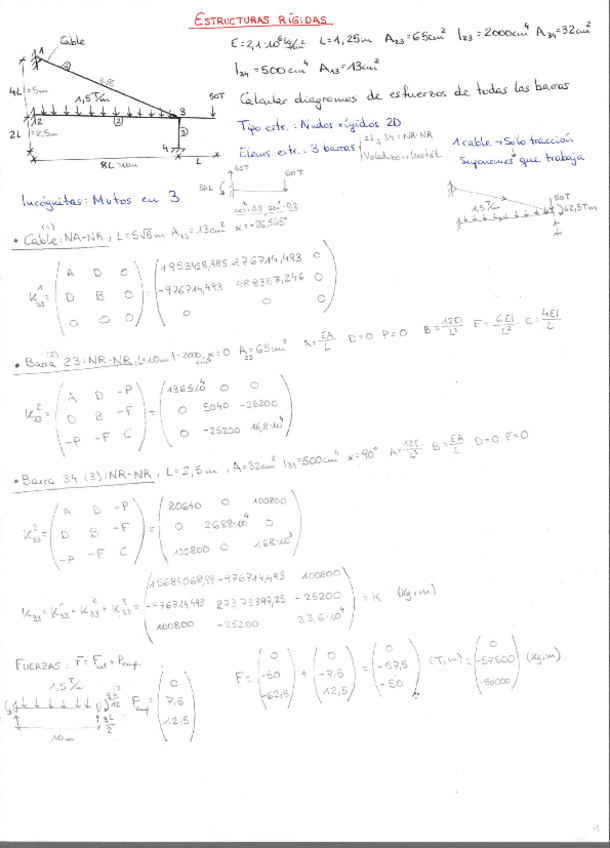 ESTRUCTURAS RÍGIDAS
Cable
E=2,1·10⁶ kg/cm² L=1,25m A₂₃=65cm² I₂₃=2000cm⁴ A₃₄=32cm²
I₃₄=500cm⁴ A₁₃=13cm²
4L=5m
1,5 T/m
50T
2L=2,5m
8L=10m
L
Calcular diagramas de esfuerzos de todas las barras
Tipo estr.: Nudos rígidos 2D
Elems. estr.: 3 barras
23 y 34: NR-NR
1 cable → Sólo tracción
Suponemos que trabaja
Incógnitas: Mvtos en 3
50T
50T
50L
1,5T/m
50T
62,5Tm
(1)
• Cable: NA-NR, L=5√5m A₁₃=13cm² α=-26,565°
K₃₃¹ =
A D 0
D B 0
0 0 0
=
1953428,985 -976714,493 0
-976714,493 488357,246 0
0 0 0
(2)
• Barra 23: NR-NR, L=10m I=2000cm⁴, α=0. A₂₃=65cm² A=EA/L D=0 P=0 B=12EI/L³ F=6EI/L² C=4EI/L
K₃₃² =
A D -P
D B -F
-P -F C
=
1365·10⁴ 0 0
0 5040 -25200
0 -25200 16,8·10⁴
• Barra 34 (3): NR-NR, L=2,5m, A=32cm² I₃₄=500cm⁴ α=90° A=12EI/L³ B=EA/L D=0 F=0
K₃₃³ =
A D -P
D B -F
-P -F C
=
80640 0 100800
0 2688·10⁴ 0
100800 0
K₃₃ = K₃₃¹ + K₃₃² + K₃₃³ =
15684068,99 -976714,493 100800
-976714,493 27372397,25 -25200
100800 -25200 33,6·10⁴
= K (kg,m)
FUERZAS:
1,5T/m
qL²/12
qL/2
10m
0
7,5
12,5
F =
0
-50
-62,5
+
0
-7,5
12,5
=
0
-57,5
-50
(T,m) =
0
-57500
-50000
(kg,m)
1